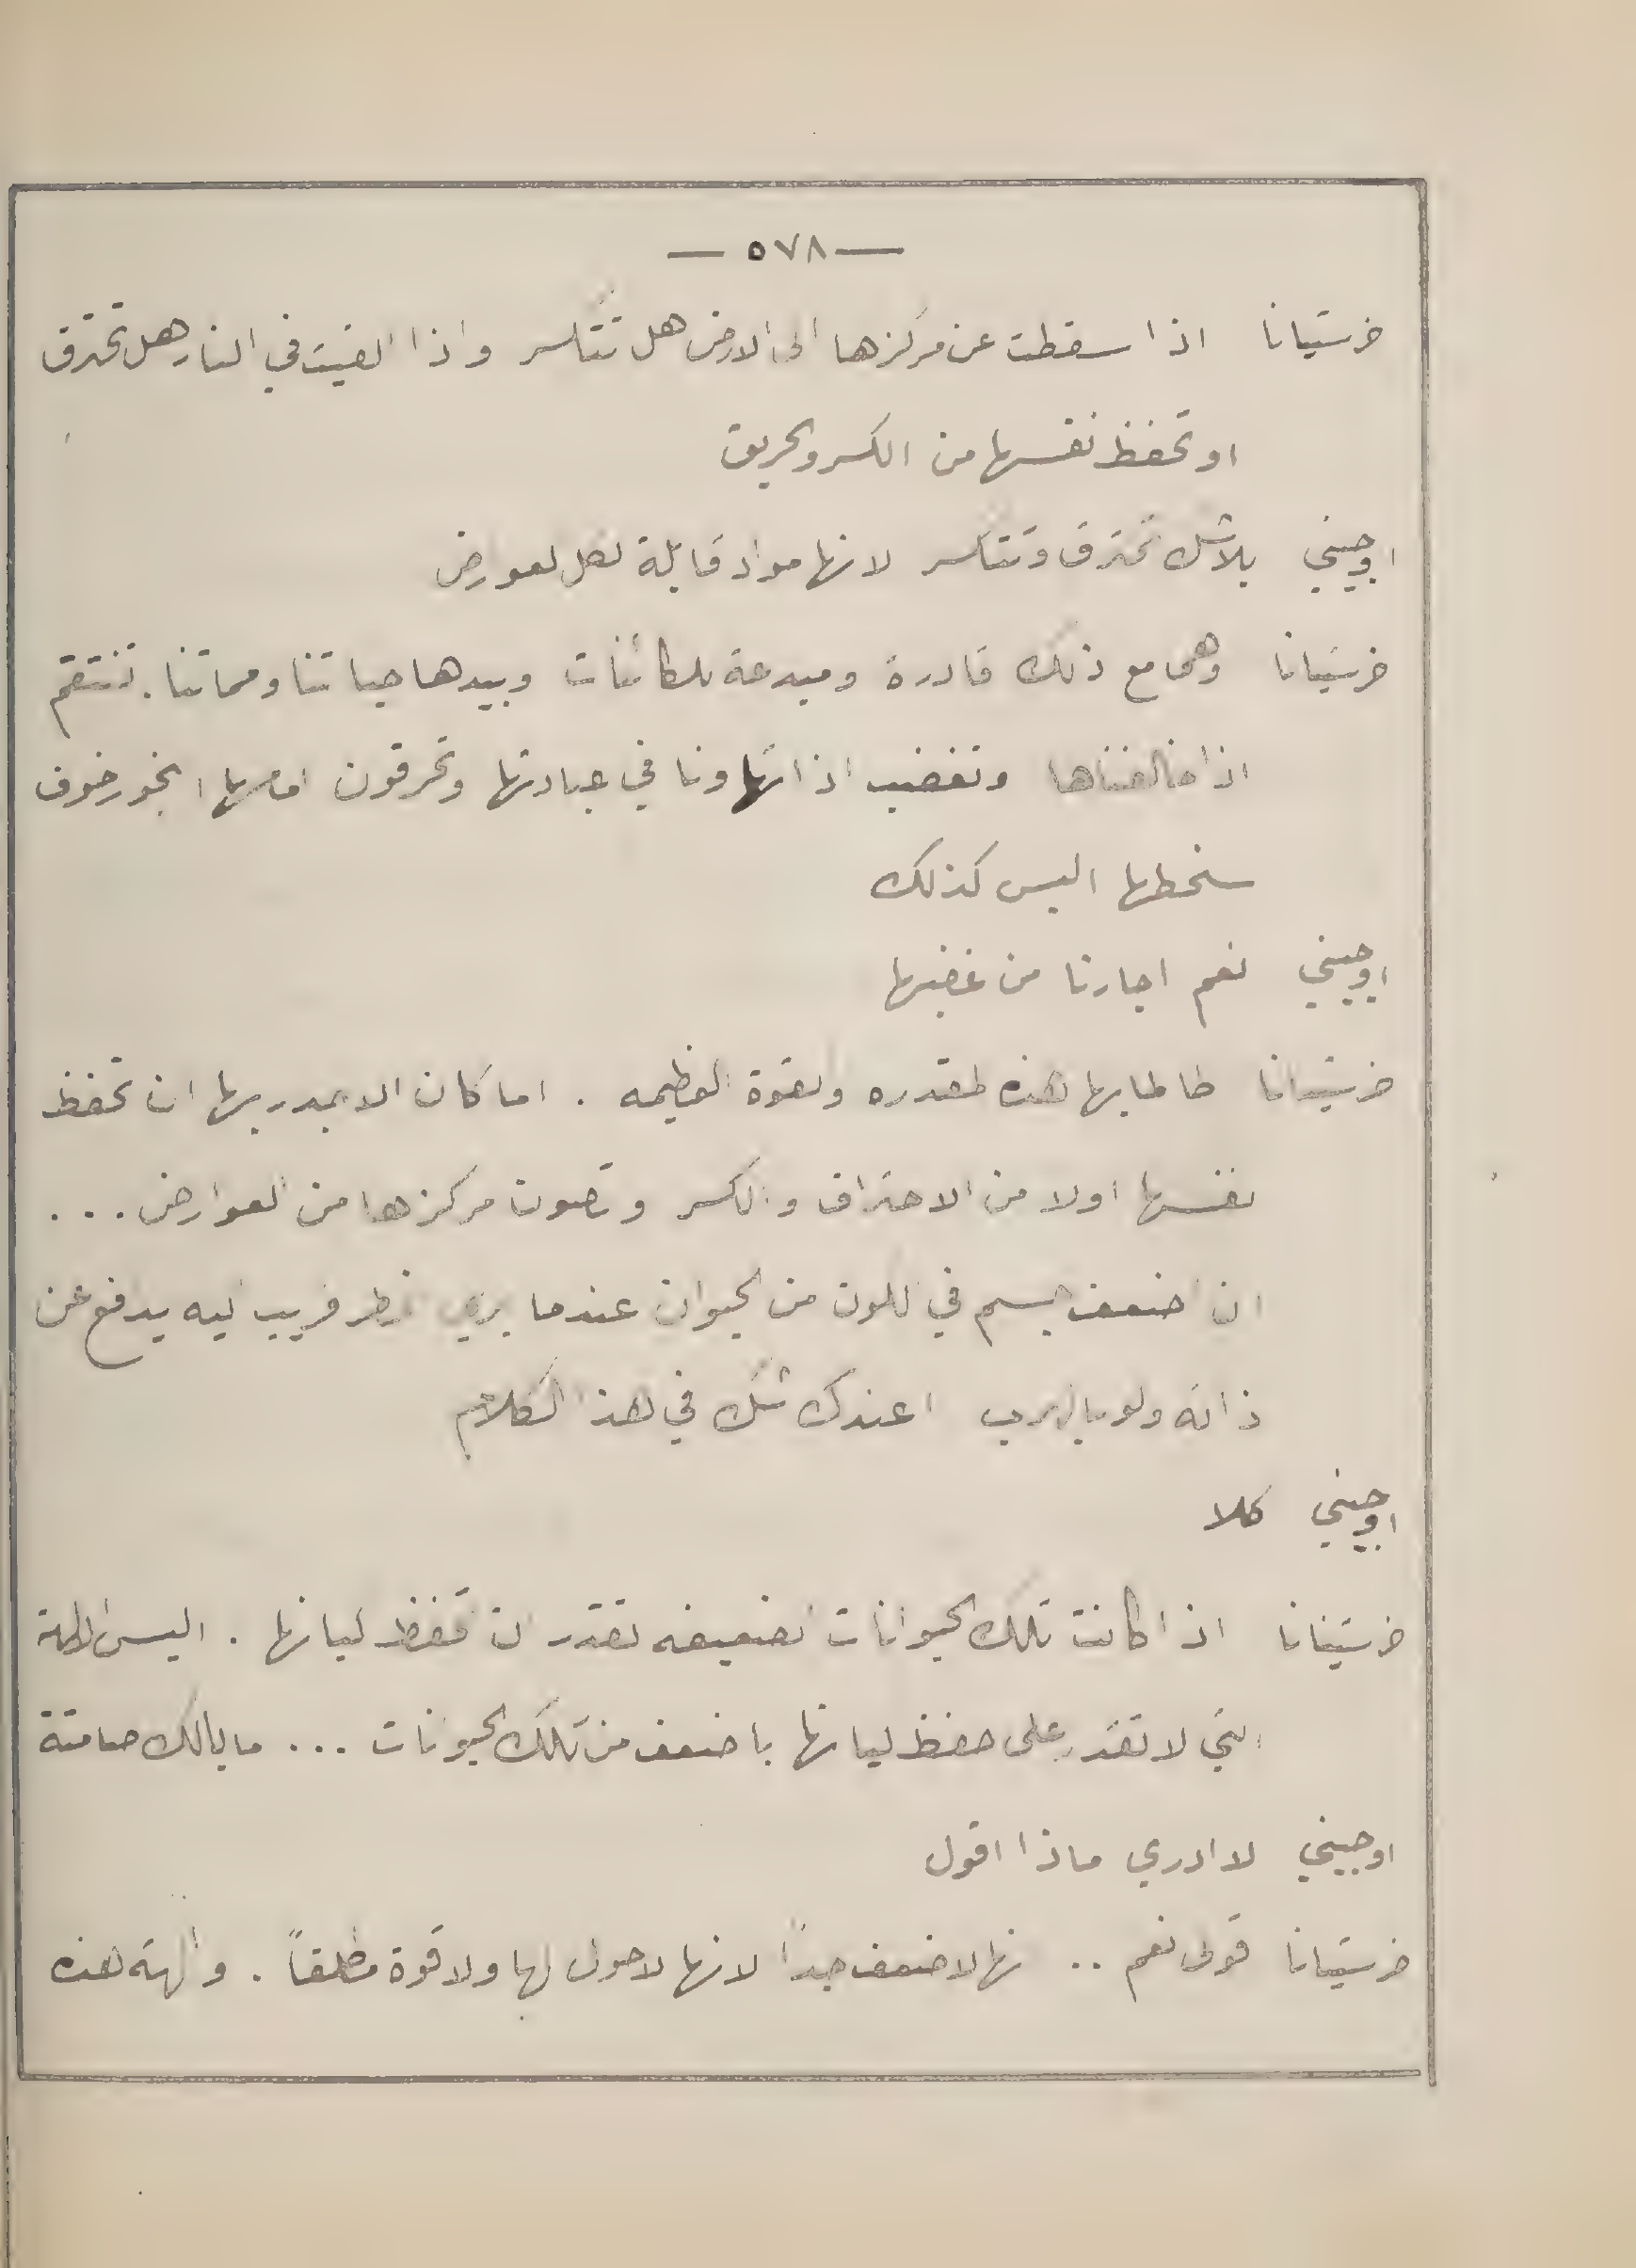 — ٥٧٨ —
خرستيانا اذا سقطت عن مركزها الى الارض هل تتكسر واذا القيت في النار هل تحترق
او تحفظ نفسها من الكسر والحريق
اوجيني بلا شك تحترق وتتكسر لانها مواد قابلة لكل لعوارض
خرستيانا وهي مع ذلك قادرة ومبدعة للكائنات وبيدها حياتنا ومماتنا . تنتقم
اذا خالفناها وتغضب اذا تهاونا في عبادتها وتحرقون امامها البخور خوف
سخطها اليس كذلك
اوجيني نعم اجارنا من غضبها
خرستيانا طالما بها هذه لمقدره ولقوة العظيمه . اما كان الا يجدر بها ان تحفظ
نفسها اولا من الاحتراق والكسر وتصون مركزها من العوارض ...
ان اضعف جسم في للون من الحيوان عندما يرى خطر قريب ليه يدفع عن
ذاته ولو بالهرب اعندك شك في هذا الكلام
اوجيني كلا
خرستيانا اذا كانت تلك الحيوانات لضعيفه تقدر ان تحفظ كيانها . اليس الالهة
التي لا تقدر على حفظ كيانها باضعف من تلك الحيونات ... ما بالك صامتة
اوجيني لا ادري ماذا اقول
خرستيانا قولى نعم .. نها لاضعف جداً لانها لا حول لها ولا قوة مطلقاً . والهة هذه